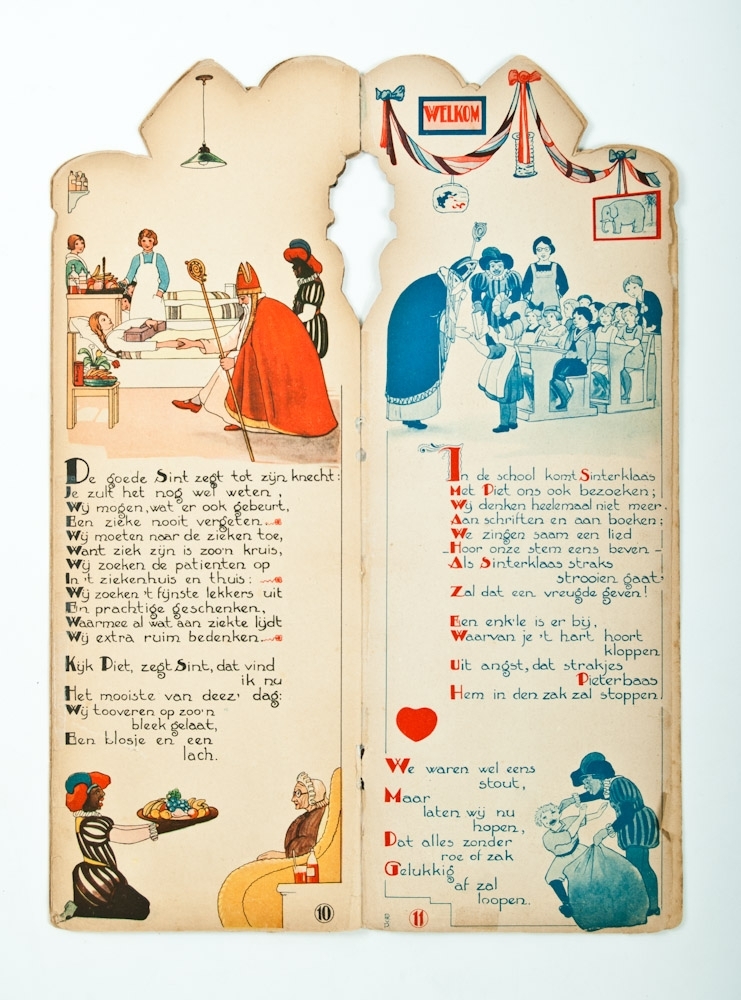 De goede Sint zegt tot zijn knecht:
Je zult het nog wel weten,
Wij mogen, wat er ook gebeurt,
Een zieke nooit vergeten.
Wij moeten naar de zieken toe,
Want ziek zijn is zoo'n kruis,
Wij zoeken de patienten op
In 't ziekenhuis en thuis:
Wij zoeken 't fijnste lekkers uit
En prachtige geschenken,
Waarmee al wat aan ziekte lijdt
Wij extra ruim bedenken.
Kijk Piet, zegt Sint, dat vind
ik nu
Het mooiste van deez' dag:
Wij tooveren op zoo'n
bleek gelaat,
Een blosje en een
lach.
10
WELKOM
In de school komt Sinterklaas
Met Piet ons ook bezoeken;
Wij denken heelemaal niet meer
Aan schriften en aan boeken;
We zingen saam een lied
-Hoor onze stem eens beven-
Als Sinterklaas straks
strooien gaat
Zal dat een vreugde geven!
Een enk'le is er bij,
Waarvan je 't hart hoort
kloppen
Uit angst, dat strakjes
Pieterbaas
Hem in den zak zal stoppen
We waren wel eens
stout,
Maar
laten wij nu
hopen,
Dat alles zonder
roe of zak
Gelukkig
af zal
loopen.
11